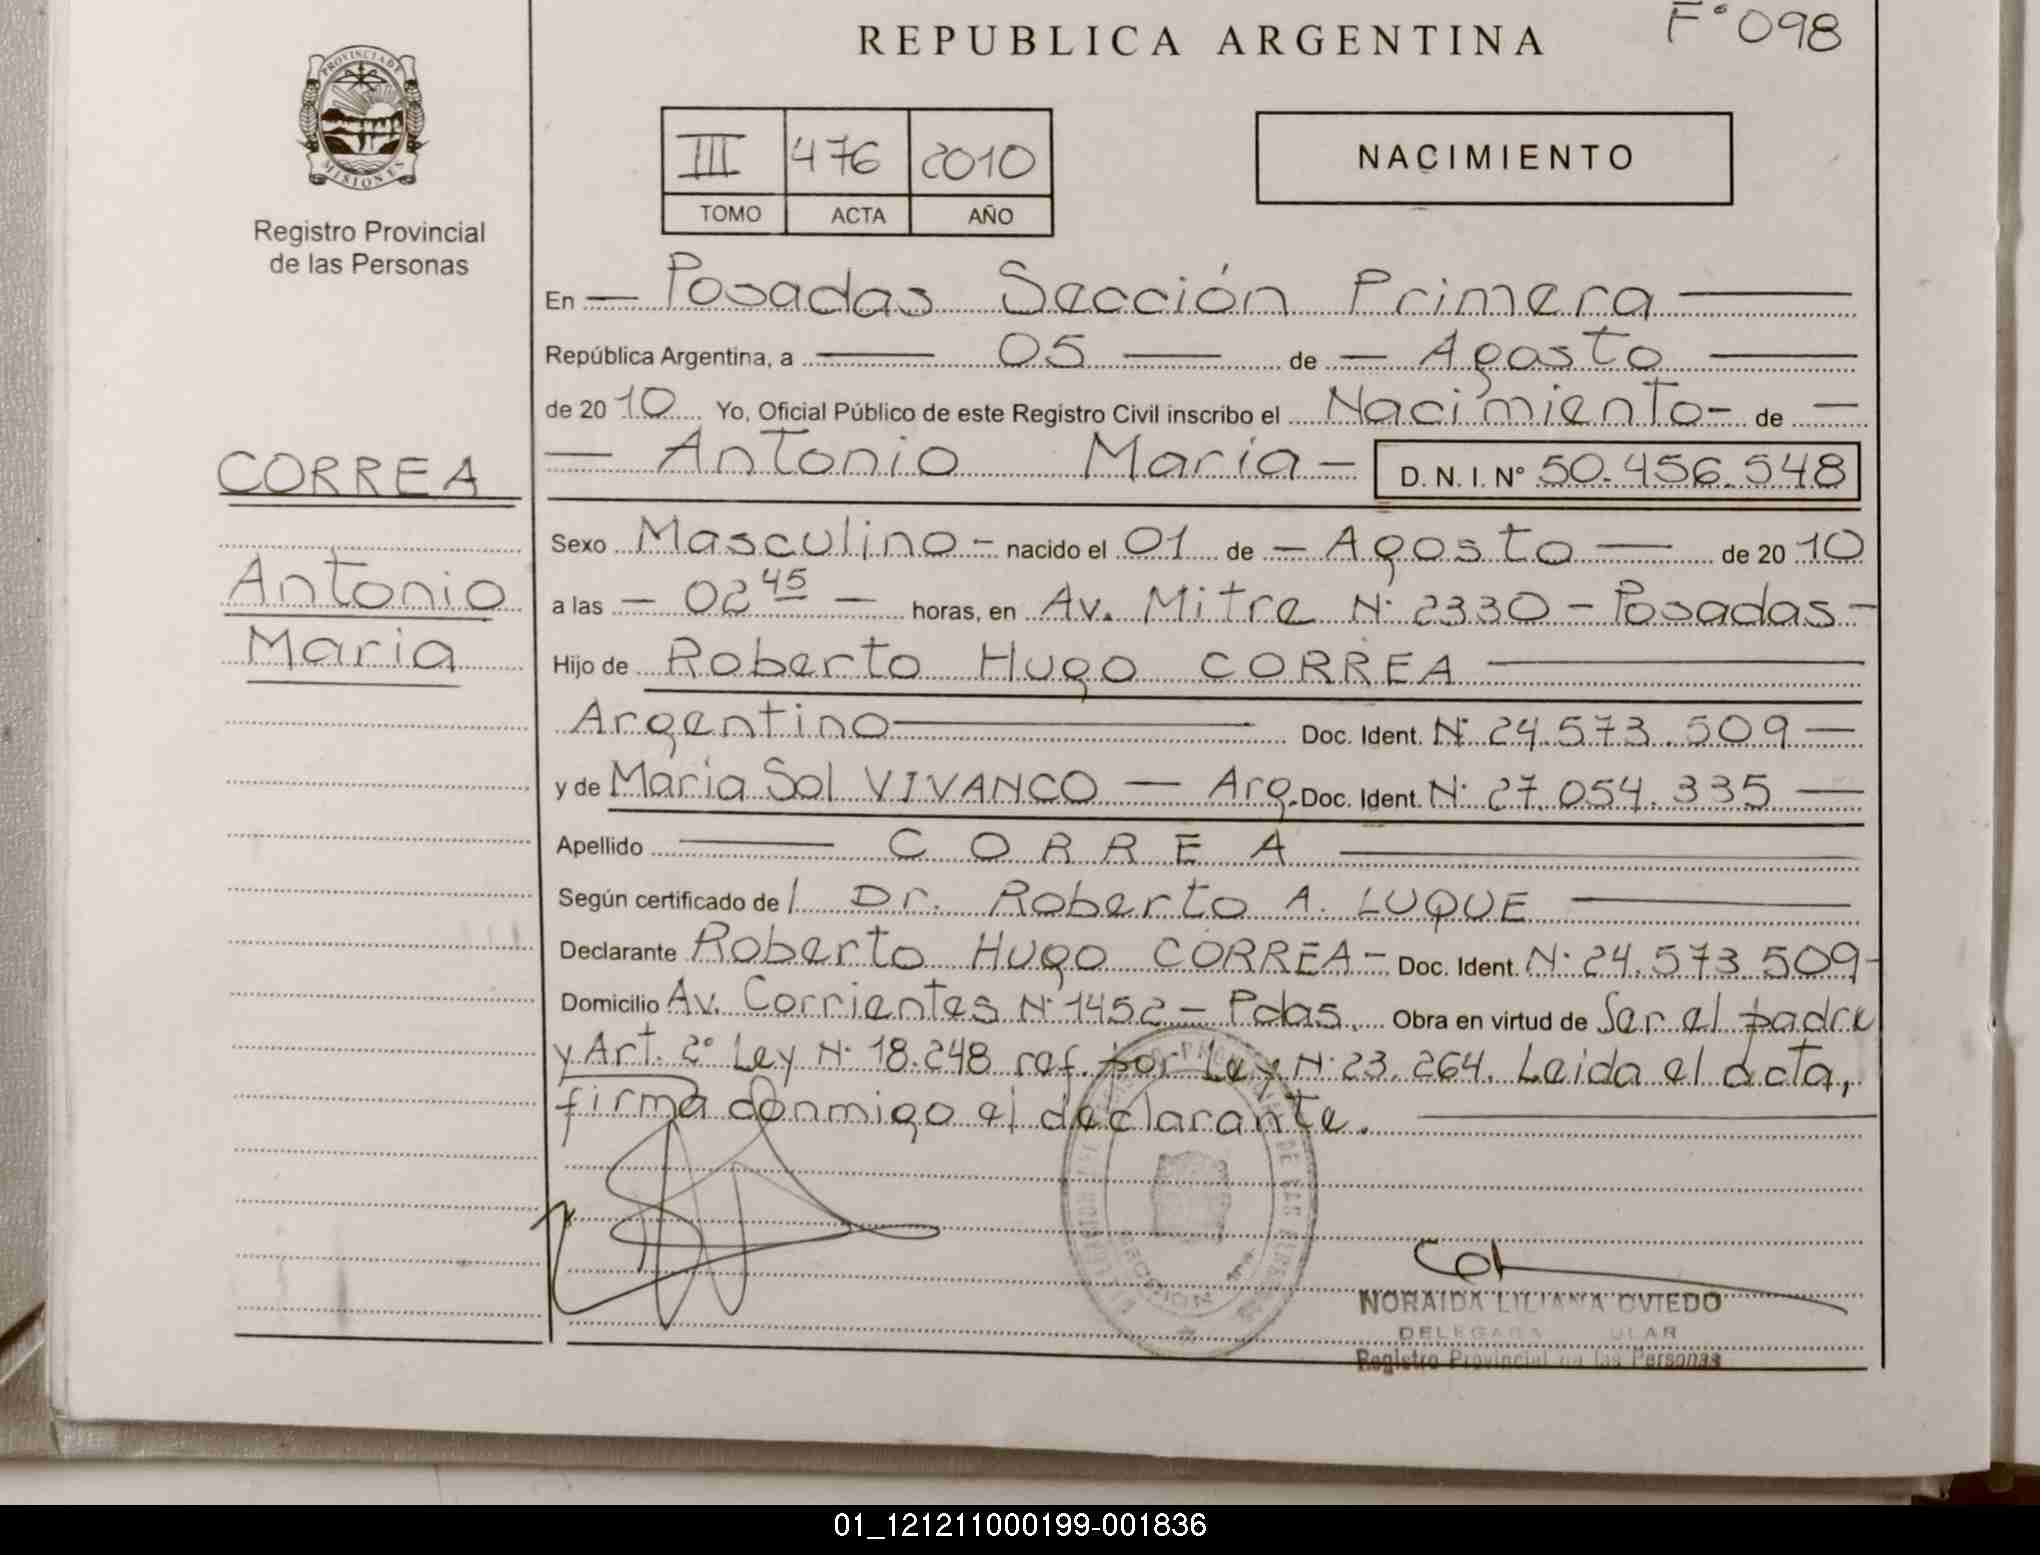 REPUBLICA ARGENTINA
F° 098
PROVINCIA DE
MISIONES
Registro Provincial
de las Personas
III 476 2010
TOMO ACTA AÑO
NACIMIENTO
En — Posadas Sección Primera —
República Argentina, a — 05 — de — Agosto —
de 2010 Yo, Oficial Público de este Registro Civil inscribo el Nacimiento - de —
— Antonio Maria — D. N. I. N° 50.456.548
CORREA
Antonio
Maria
Sexo Masculino - nacido el 01 de — Agosto — de 2010
a las — 02 45 — horas, en Av. Mitre N° 2330 - Posadas -
Hijo de Roberto Hugo CORREA —
Argentino — Doc. Ident. N° 24.573.509 —
y de Maria Sol VIVANCO — Arg. Doc. Ident. N° 27.054.335 —
Apellido — CORREA —
Según certificado de l Dr. Roberto A. LUQUE —
Declarante Roberto Hugo CORREA - Doc. Ident. N° 24.573.509 -
Domicilio Av. Corrientes N° 1452 - Pdas. Obra en virtud de Ser el padre
y Art. 2° Ley N° 18.248 ref. por Ley N° 23.264. Leida el acta,
firma conmigo el declarante. —
NORAIDA LILIANA OVIEDO
Registro Provincial de las Personas
01_121211000199-001836